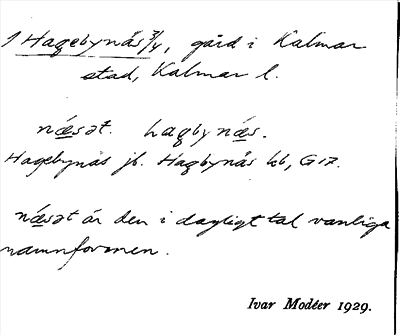 1 Hagebynäs 3/4, gård i Kalmar
stad, Kalmar l.
næsət. hagbynæs.
Hagebynäs jb. Hagbynäs kb, G17.
næsət är den i dagligt tal vanliga
namnformen.
Ivar Modéer 1929.